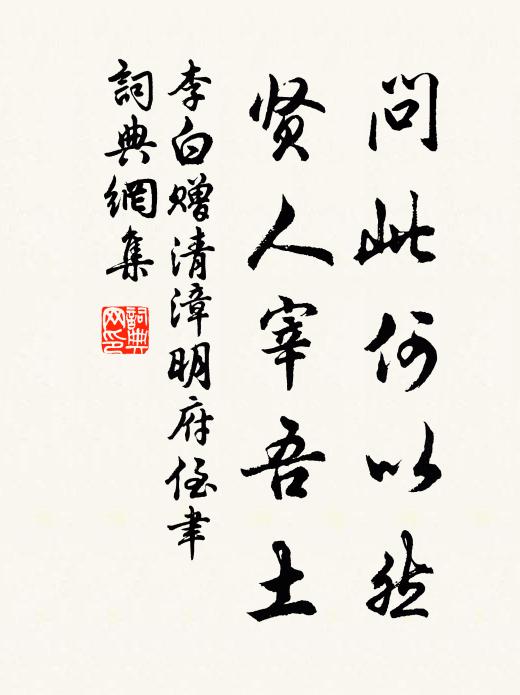 问此何以然
贤人宰吾土
李白赠清漳明府侄聿
詞典網集
詞典网印